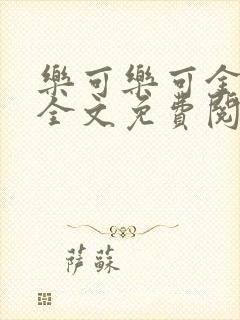 樂可樂可全
全文免費閱
萨蘇